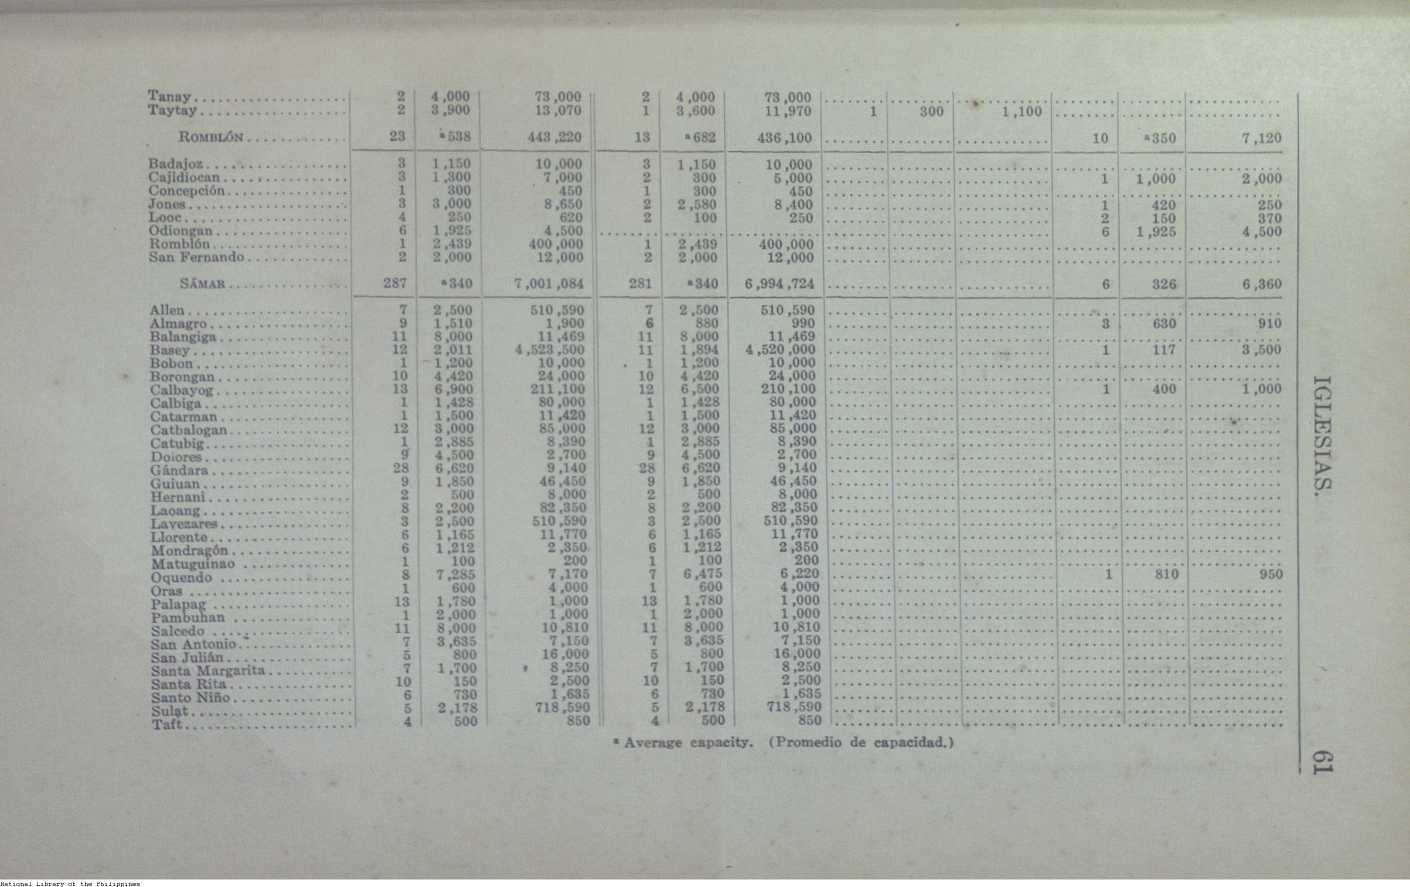 Tanay 2 4,000 73,000 2 4,000 73,000
Taytay 2 3,900 13,070 1 3,600 11,970 1 300 1,100
ROMBLÓN 23 ª538 443,220 13 ª682 436,100 10 ª350 7,120
Badajoz 3 1,150 10,000 3 1,150 10,000
Cajidiocan 3 1,300 7,000 2 300 5,000 1 1,000 2,000
Concepción 1 300 450 1 300 450
Jones 3 3,000 8,650 2 2,580 8,400 1 420 250
Looc 4 250 620 2 100 250 2 150 370
Odiongan 6 1,925 4,500 6 1,925 4,500
Romblón 1 2,439 400,000 1 2,439 400,000
San Fernando 2 2,000 12,000 2 2,000 12,000
SÁMAR 287 ª340 7,001,084 281 ª340 6,994,724 6 326 6,360
Allen 7 2,500 510,590 7 2,500 510,590
Almagro 9 1,510 1,900 6 880 990 3 630 910
Balangiga 11 8,000 11,469 11 8,000 11,469
Basey 12 2,011 4,523,500 11 1,894 4,520,000 1 117 3,500
Bobon 1 1,200 10,000 1 1,200 10,000
Borongan 10 4,420 24,000 10 4,420 24,000
Calbayog 13 6,900 211,100 12 6,500 210,100 1 400 1,000
Calbiga 1 1,428 80,000 1 1,428 80,000
Catarman 1 1,500 11,420 1 1,500 11,420
Catbalogan 12 3,000 85,000 12 3,000 85,000
Catubig 1 2,885 8,390 1 2,885 8,390
Dolores 9 4,500 2,700 9 4,500 2,700
Gándara 28 6,620 9,140 28 6,620 9,140
Guiuan 9 1,850 46,450 9 1,850 46,450
Hernani 2 500 8,000 2 500 8,000
Laoang 8 2,200 82,350 8 2,200 82,350
Lavezares 3 2,500 510,590 3 2,500 510,590
Llorente 6 1,165 11,770 6 1,165 11,770
Mondragón 6 1,212 2,350 6 1,212 2,350
Matuguinao 1 100 200 1 100 200
Oquendo 8 7,285 7,170 7 6,475 6,220 1 810 950
Oras 1 600 4,000 1 600 4,000
Palapag 13 1,780 1,000 13 1,780 1,000
Pambuhan 1 2,000 1,000 1 2,000 1,000
Salcedo 11 8,000 10,810 11 8,000 10,810
San Antonio 7 3,635 7,150 7 3,635 7,150
San Julián 5 800 16,000 5 800 16,000
Santa Margarita 7 1,700 8,250 7 1,700 8,250
Santa Rita 10 150 2,500 10 150 2,500
Santo Niño 6 730 1,635 6 730 1,635
Sulat 5 2,178 718,590 5 2,178 718,590
Taft 4 500 850 4 500 850
ª Average capacity. (Promedio de capacidad.)
IGLESIAS.
61
National Library of the Philippines